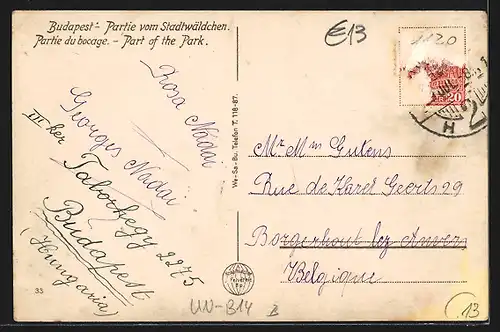 Budapest - Partie vom Stadtwäldchen.
Partie du bocage. - Part of the Park.
€13
1120
20
H
2
We-Sa-Bu. Telefon T. 118-87.
Rosa Nádai
Georges Nádai
III ker
2275
Budapest
(Hungaria)
Mr Mm Gutens
Rue de Karel Geerts 29
Borgerhout lez Anvers
Belgique
33
UN-B14
B
13